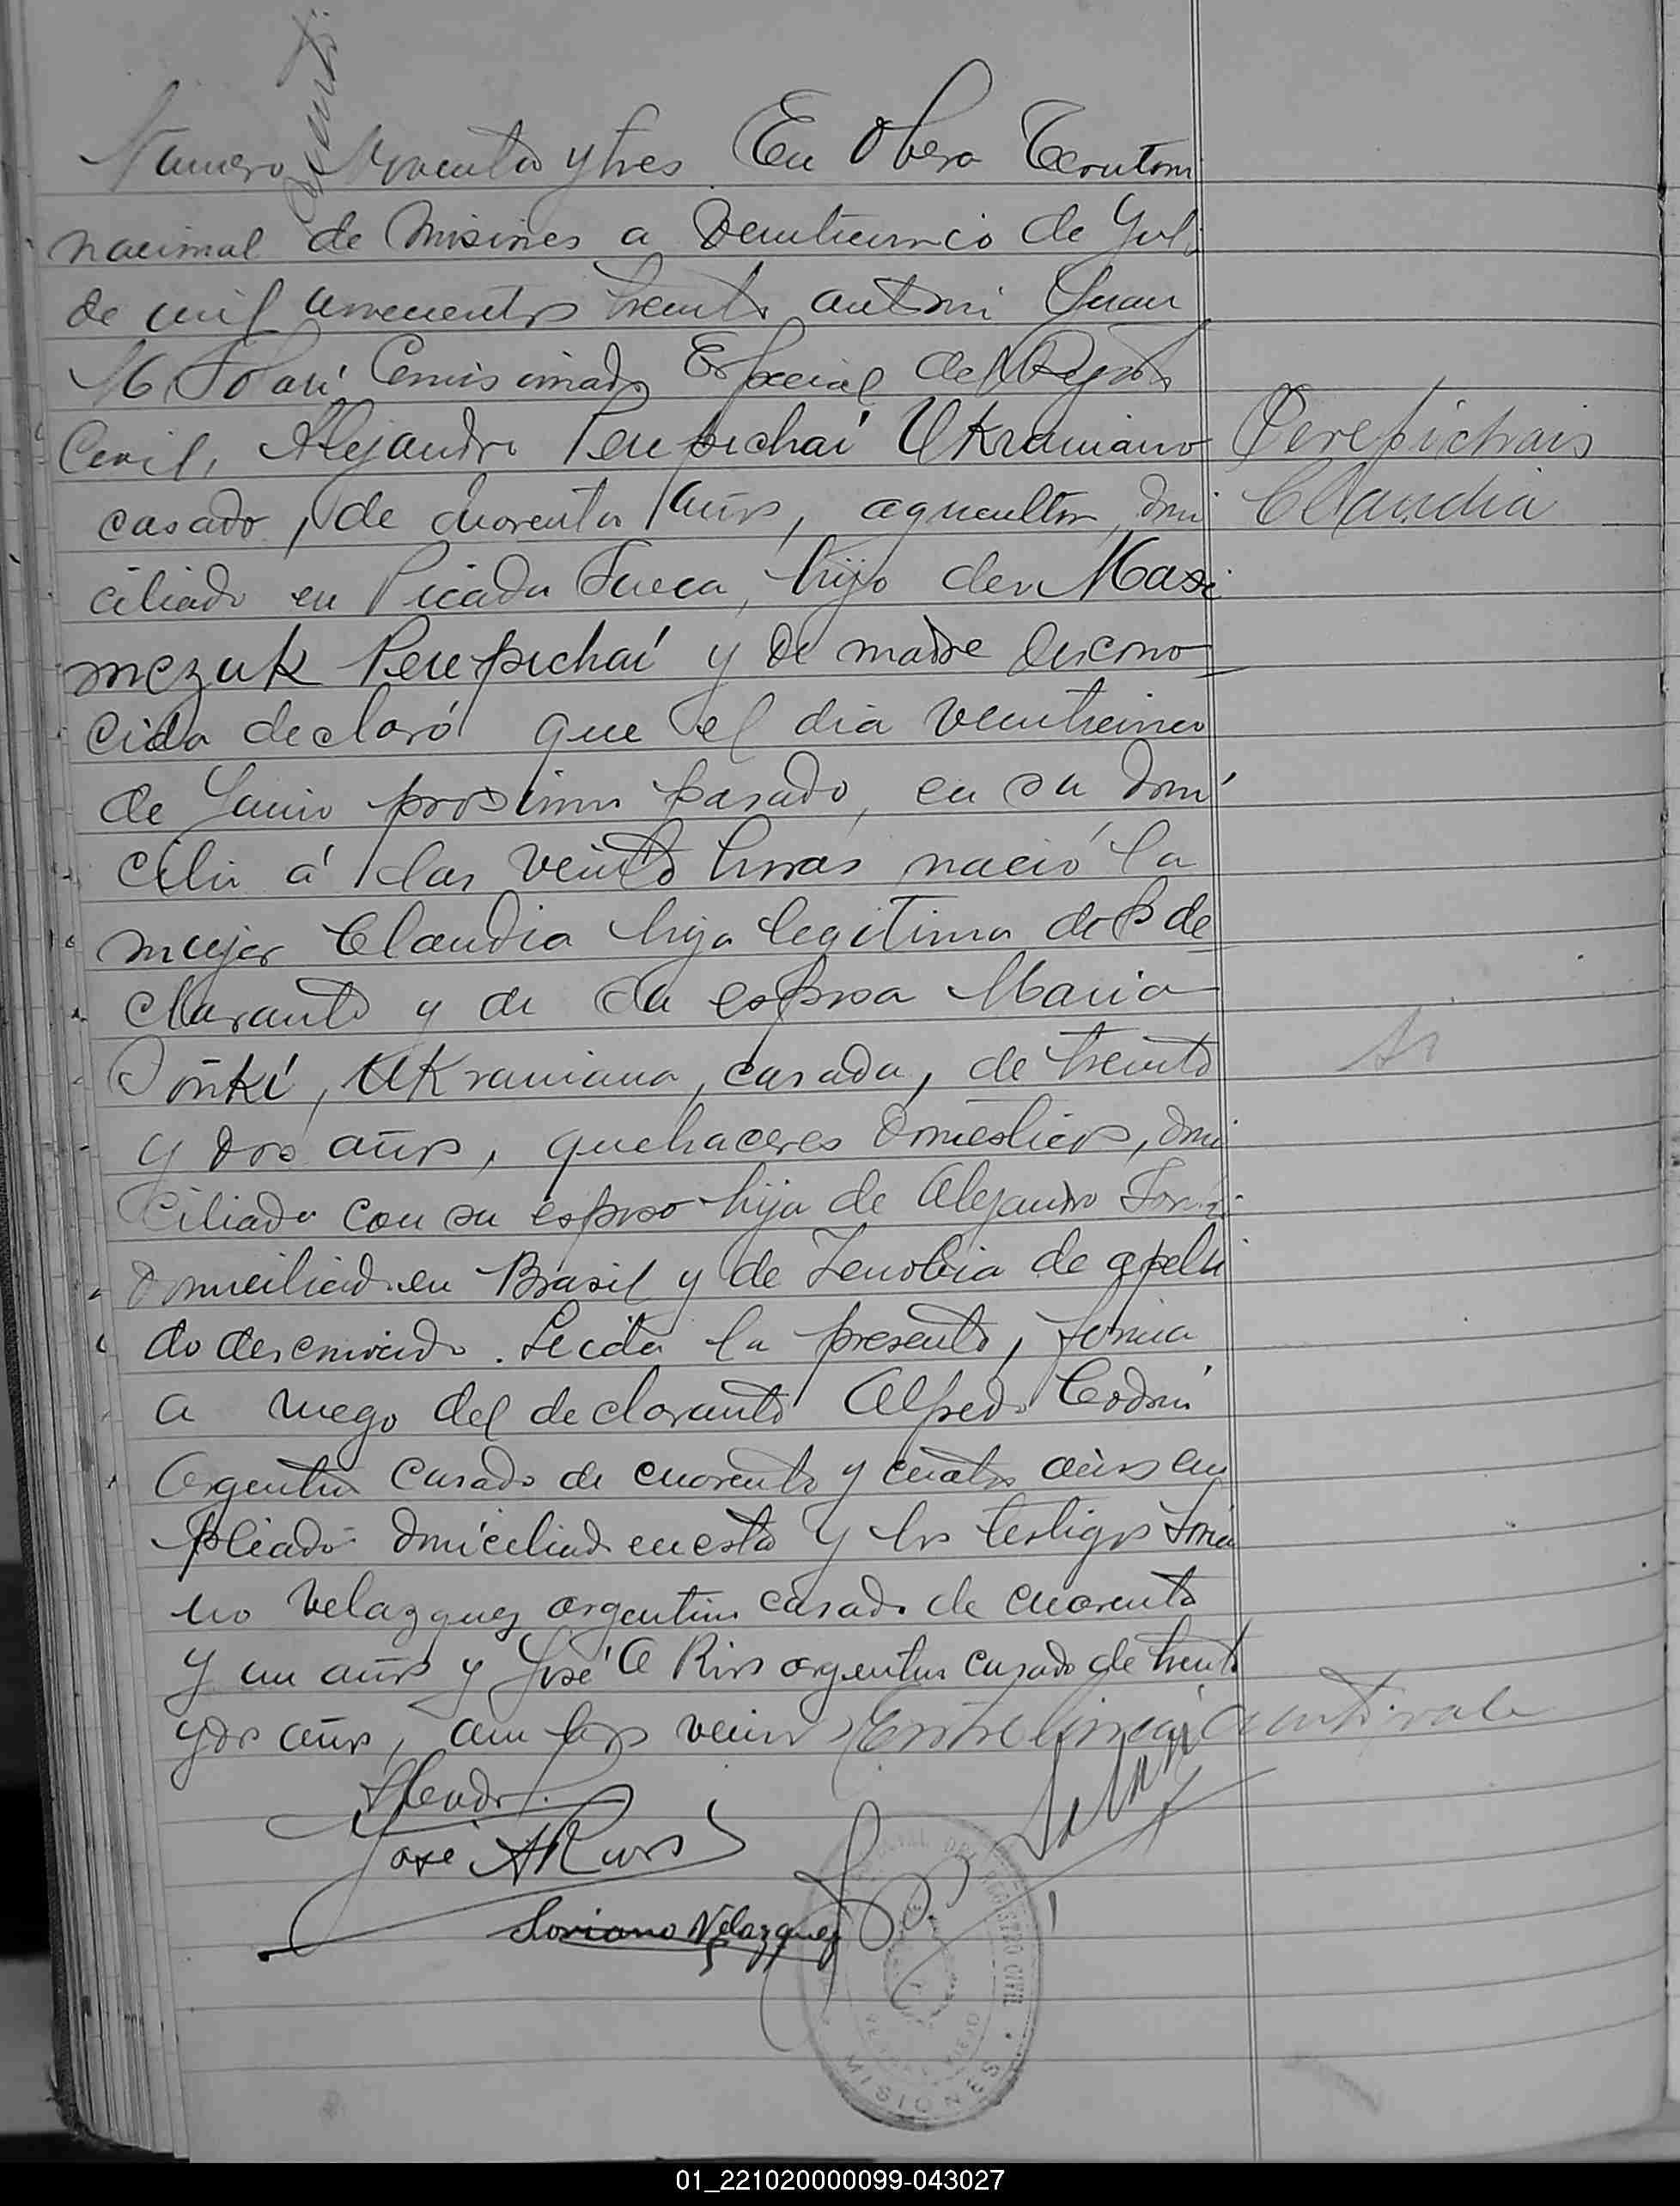 Numero Noventa y tres En Obera Territori
nacional de Misiones a Veinticinco de Juli
de mil novecientos treinta ante mi Juan
M Solari Comisionado Especial del Registro
Civil, Alejandro Perepichai Ukraniano
casado, de cuarenta años, agricultor, domi
ciliado en Picada Sueca, hijo de Maxi
mczuk Perepichai y de madre descono
cida declaró que el dia veinticinco
de Junio proximo pasado, en su domi
cilio á las veinte horas nació la
mujer Claudia hija legitima del de
clarante y de su esposa Maria
Ukraniana, casada, de treinta
y dos años, quehaceres domesticos, domi
ciliada con su esposo hija de Alejandro
domiciliado en Brasil y de Zenobia de apelli
do desconocido. Leida la presente, firma
a ruego del declarante Alfredo
Argentino casado de cuarenta y cuatro años em
pleado domiciliado en esta y los testigos Soria
no Velazquez argentino casado de cuarenta
y un años y José A Rios argentino casado de treinta
y dos años, ambos vecinos Entre linea vale
José A Rios
Soriano Velazquez
Perepichais
Claudia
REGISTRO CIVIL
MISIONES
01_221020000099-043027